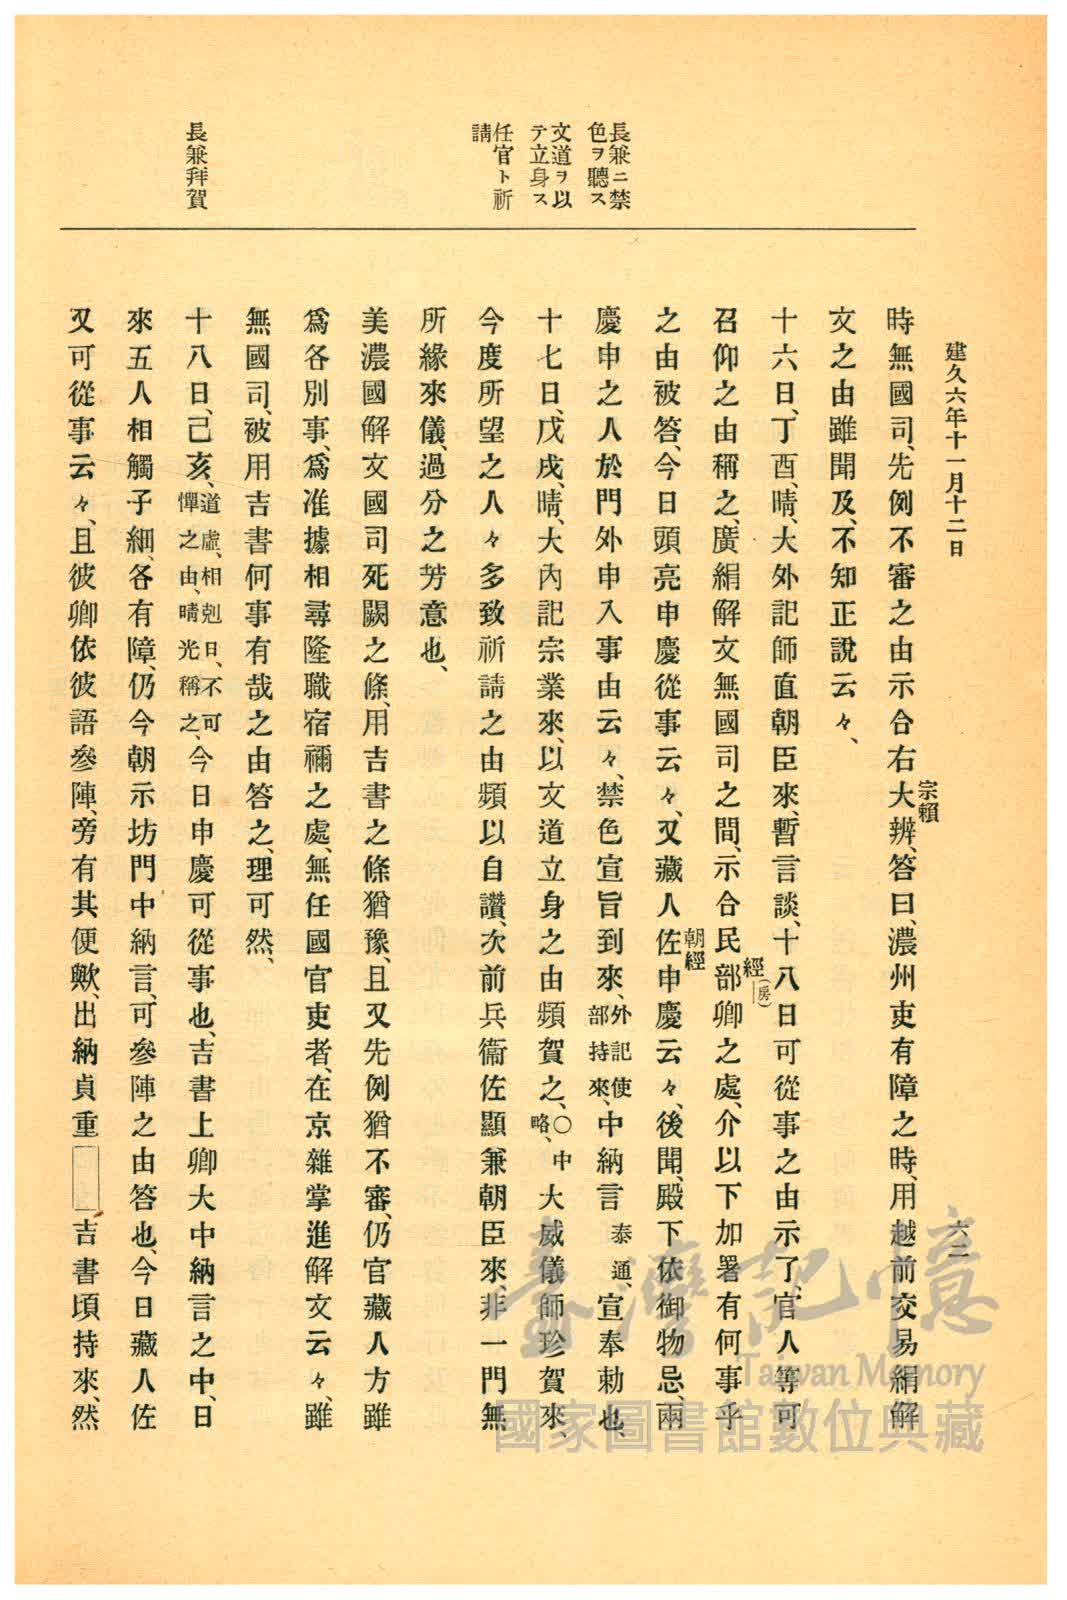 建久六年十一月十二日
六二
長兼ニ禁
色ヲ聽ス
文道ヲ以
テ立身ス
任官ト祈
請
長兼拜賀
時無國司、先例不審之由示合右大辨、答曰、濃州吏有障之時、用越前交易絹解
宗賴
文之由雖聞及、不知正說云々、
十六日、丁酉、晴、大外記師直朝臣來、暫言談、十八日可從事之由示了、官人等可
召仰之由稱之、廣絹解文無國司之間、示合民部卿之處、介以下加署有何事乎
經(房)
之由被答、今日頭亮申慶從事云々、又藏人佐申慶云々、後聞、殿下依御物忌、兩
朝經
慶申之人於門外申入事由云々、禁色宣旨到來、外記使部持來、中納言泰通、宣奉勅也、
十七日、戊戌、晴、大內記宗業來、以文道立身之由頻賀之、○中略、大威儀師珍賀來、
今度所望之人々多致祈請之由頻以自讚、次前兵衞佐顯兼朝臣來、非一門無
所緣來儀、過分之芳意也、
美濃國解文國司死闕之條、用吉書之條猶豫、且又先例猶不審、仍官藏人方雖
爲各別事、爲准據相尋隆職宿禰之處、無任國官吏者、在京雜掌進解文云々、雖
無國司、被用吉書何事有哉之由答之、理可然、
十八日、己亥、道虛、相剋日、不可憚之由、晴光稱之、今日申慶可從事也、吉書上卿大中納言之中、日
來五人相觸子細、各有障、仍今朝示坊門中納言、可參陣之由答也、今日藏人佐
又可從事云々、且彼卿依彼語參陣、旁有其便歟、出納貞重吉書頃持來、然
臺灣記憶
Taiwan Memory
國家圖書館數位典藏